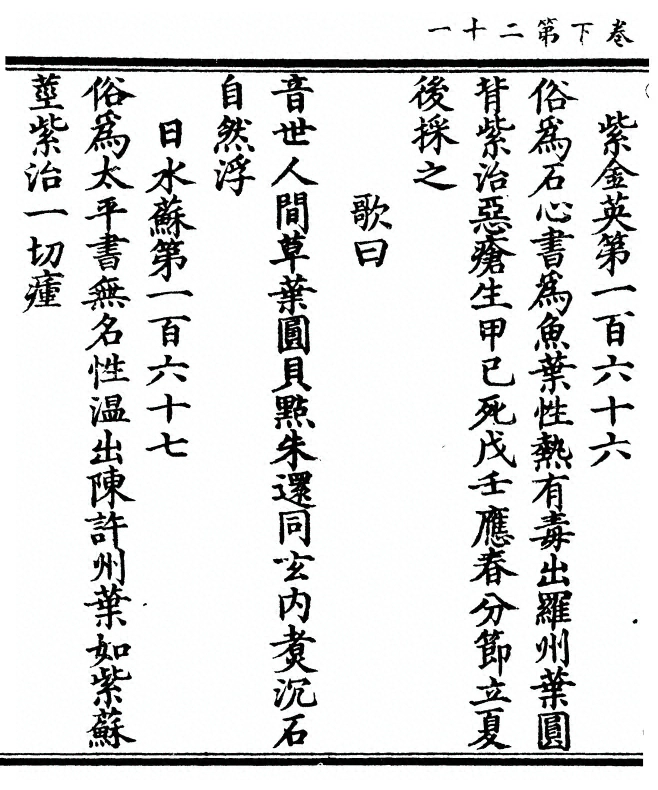 卷下第二十一
紫金英第一百六十六
俗為石心書為魚葉性熱有毒出羅州葉圓
背紫治惡瘡生甲已死戊壬應春分節立夏
後採之
歌曰
音世人間草葉圓貝點朱還同玄內煑沉石
自然浮
日水蘇第一百六十七
俗為太平書無名性温出陳許州葉如紫蘇
莖紫治一切瘇